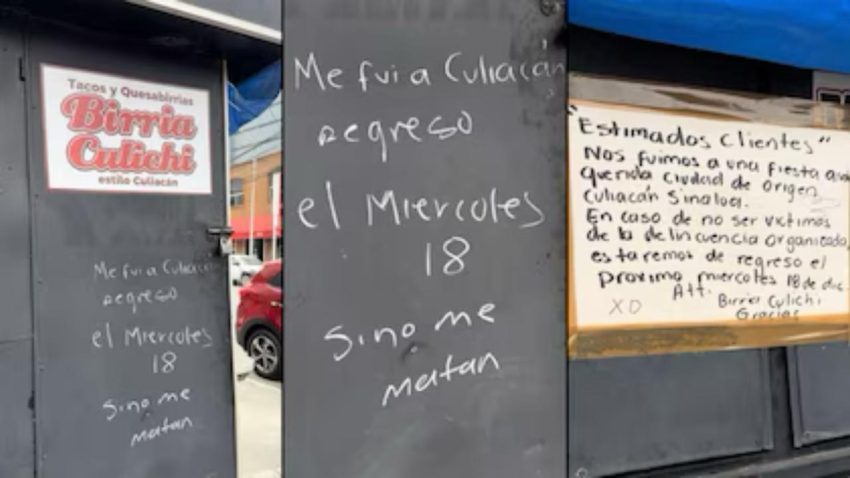 Tacos y Quesabirrias
Birria
Culichi
estilo Culiacán
Me fui a Culiacán
regreso
el Miercoles
18
Sino me
matan
Me fui a Culiacán
regreso
el Miercoles
18
Sino me
matan
"Estimados Clientes"
Nos fuimos a una fiesta a
querida ciudad de origen
Culiacán Sinaloa.
En caso de no ser victimas
de la delincuencia organizada,
estaremos de regreso el
proximo miercoles 18 de dic.
Att.
Birria Culichi
XD
Gracias